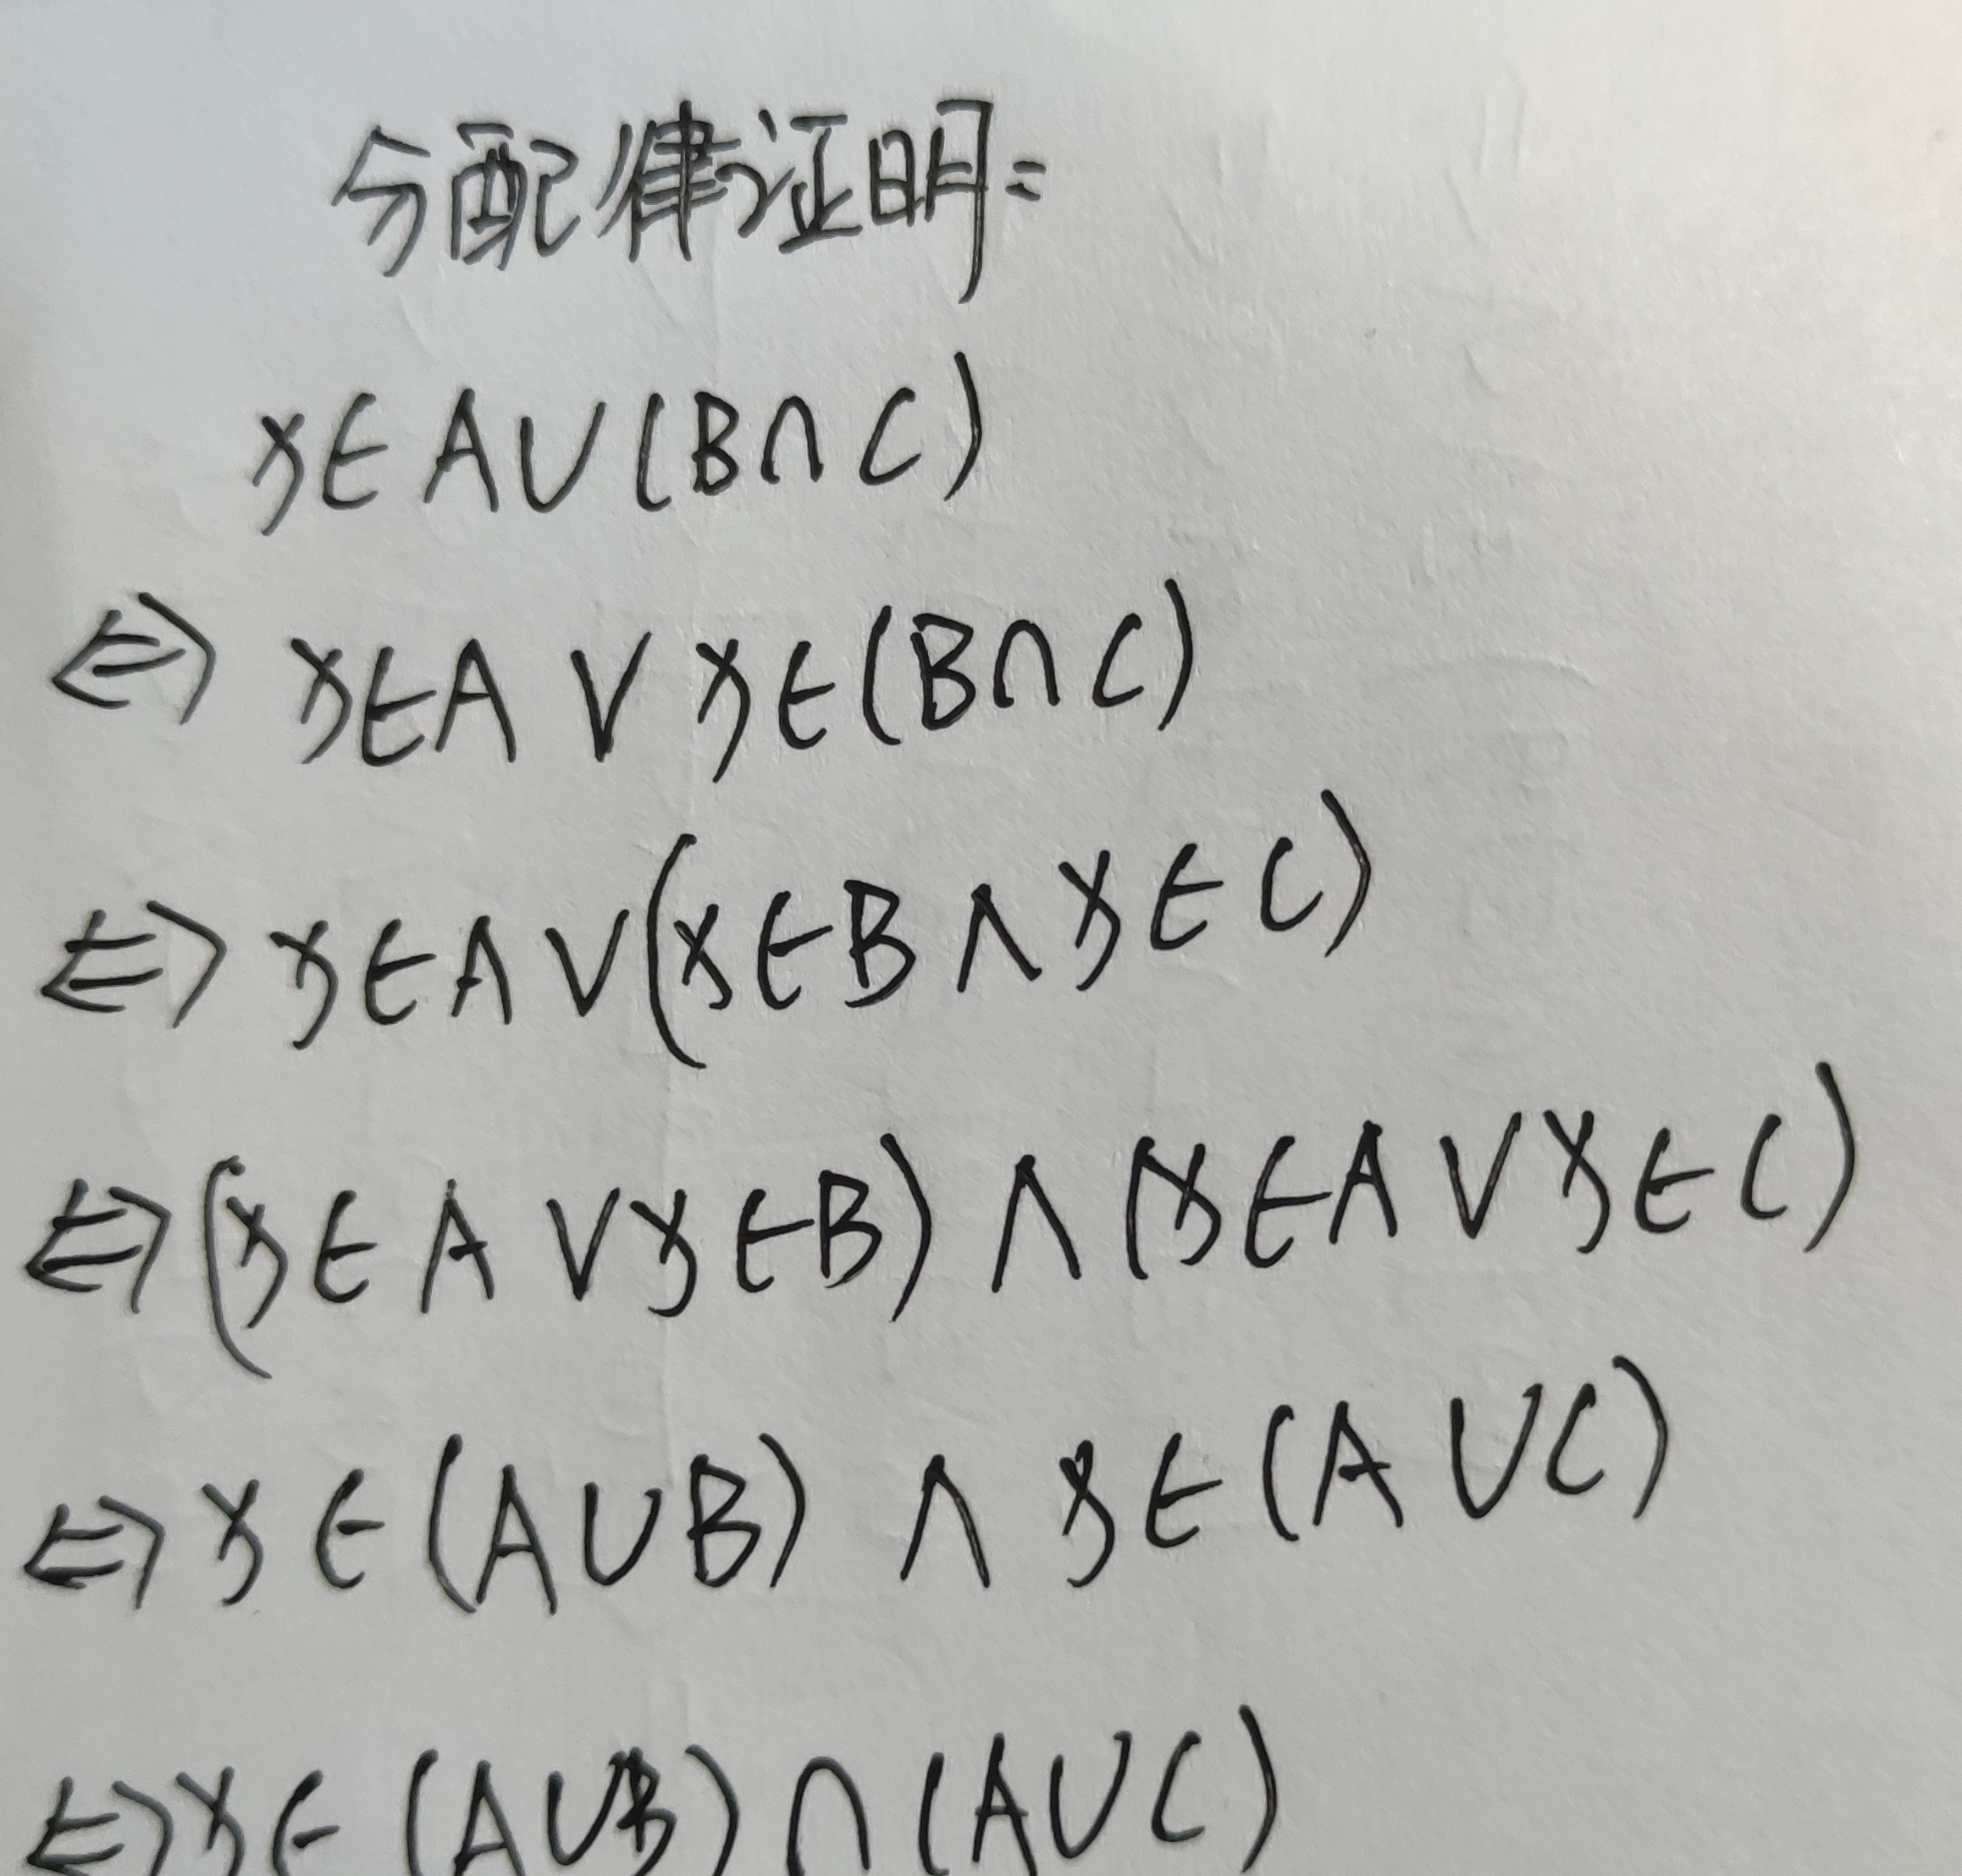 分配律证明:
x∈A∪(B∩C)
⇔ x∈A ∨ x∈(B∩C)
⇔ x∈A ∨ (x∈B ∧ x∈C)
⇔ (x∈A ∨ x∈B) ∧ (x∈A ∨ x∈C)
⇔ x∈(A∪B) ∧ x∈(A∪C)
⇔ x∈(A∪B)∩(A∪C)